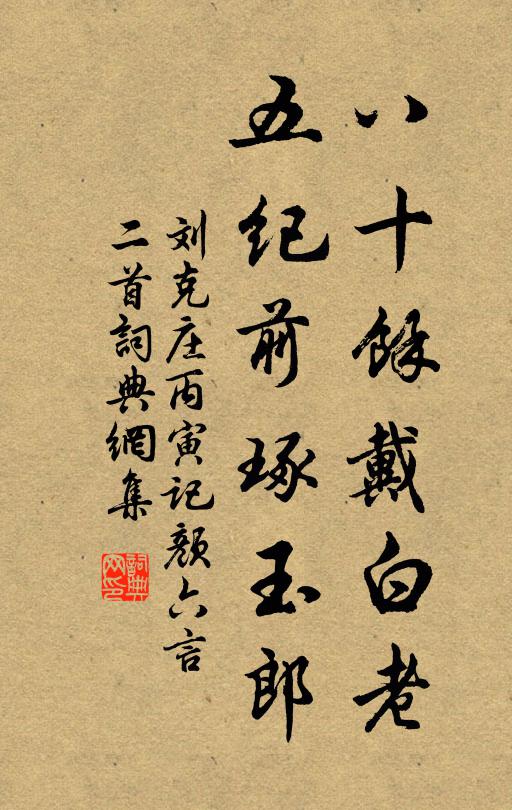 八十餘戴白老
五纪前琢玉郎
刘克庄丙寅记颜六言
二首詞典網集
詞典網印